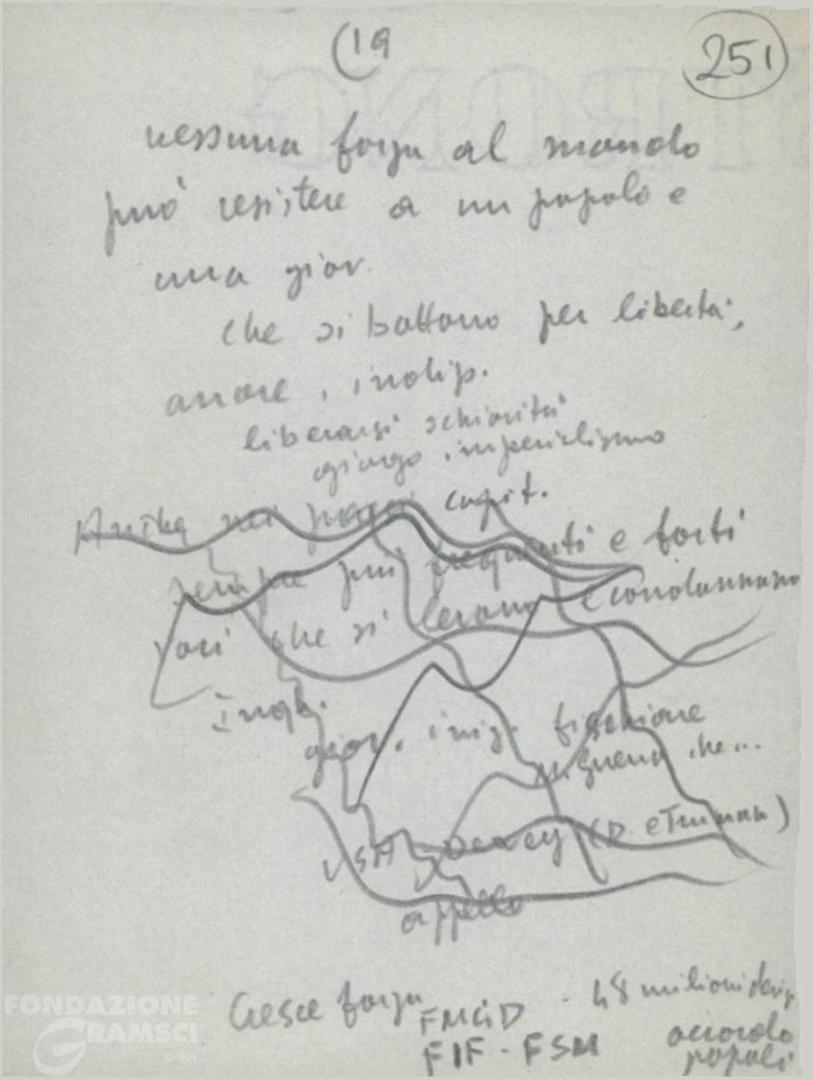 (19
251
nessuna forza al mondo
può resistere a un popolo e
una giov.
che si battono per libertà,
onore, indip.
liberarsi schiavitù
giogo imperialismo
Anche nei paesi capit.
sempre più frequenti e forti
voci che si levano e condannano
Ingh.
giov.
guerra che...
USA Dewey (D. e Truman)
appello
Cresce forza FMGD - 48 milioni
FIF - FSM
accordo
popoli
FONDAZIONE
GRAMSCI
onlus